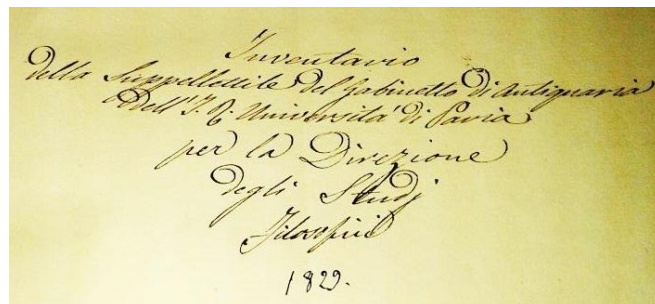 Inventario
della Suppellettile del Gabinetto di Antiquaria
dell' I. R. Università di Pavia
per la Direzione
degli Studj
Filosofici
1829.